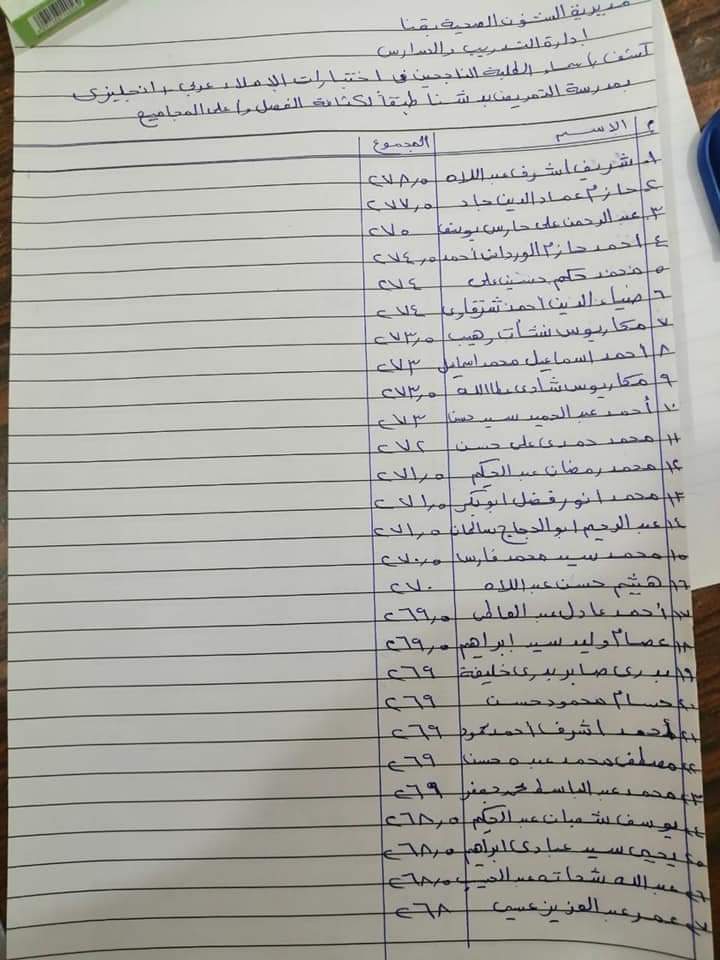 مديرية الشئون الصحية بقنا
إدارة التدريب والمدارس
كشف بأسماء الطلبة الناجحين في اختبارات الإملاء عربي + انجليزي
بمدرسة التمريض بدشنا طبقاً لكثافة الفصل وأعلى المجاميع
م الاسم المجموع
١ شريف اشرف عبد اللاه ٢٧٨,٥
٢ حازم عماد الدين جاد ٢٧٧,٥
٣ عبد الرحمن على حارس يوسف ٢٧٥
٤ احمد حازم الوردانى احمد ٢٧٤,٥
٥ محمد حكم حسين على ٢٧٤
٦ ضياء الدين احمد ٢٧٤
٧ مكاريوس نشأت رهيب ٢٧٣,٥
٨ احمد اسماعيل محمد اسماعيل ٢٧٣
٩ مكاريوس شادى عطاالله ٢٧٣,٥
١٠ أحمد عبد الحميد سيد حسن ٢٧٣
١١ محمد حمدى على حسن ٢٧٢
١٢ محمد رمضان عبد الحكيم ٢٧١,٥
١٣ محمد انور فضل ابوبكر ٢٧١,٥
١٤ عبد الرحيم ابو الحجاج ٢٧١,٥
١٥ محمد سيد محمد فارس ٢٧٠,٥
١٦ هيثم حسن عبد اللاه ٢٧٠
١٧ أحمد عادل عبد العاطى ٢٦٩,٥
١٨ عصام وليد سيد ابراهيم ٢٦٩,٥
١٩ بدرى صابر بدرى خليفة ٢٦٩
٢٠ حسام محمود حسن ٢٦٩
٢١ أحمد اشرف احمد محمود ٢٦٩
٢٢ مصطفى محمد عبده حسن ٢٦٩
٢٣ محمد عبد الباسط محمد جعفر ٢٦٩
٢٤ يوسف شعبان عبد الحكيم ٢٦٨,٥
٢٥ يحيى سيد عبادى ابراهيم ٢٦٨,٥
٢٦ عبد الله شحاته عبد الحسيب ٢٦٨,٥
٢٧ عمر عبد العزيز عيسى ٢٦٨